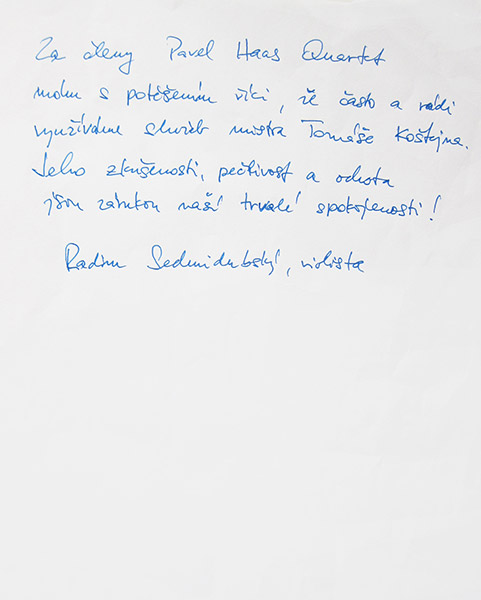 Za členy Pavel Haas Quartet
mohu s potěšením říci, že často a rádi
využíváme služeb mistra Tomáše Koštejna.
Jeho zkušenosti, pečlivost a ochota
jsou zárukou naší trvalé spokojenosti!
Radim Sedmidubský, violista